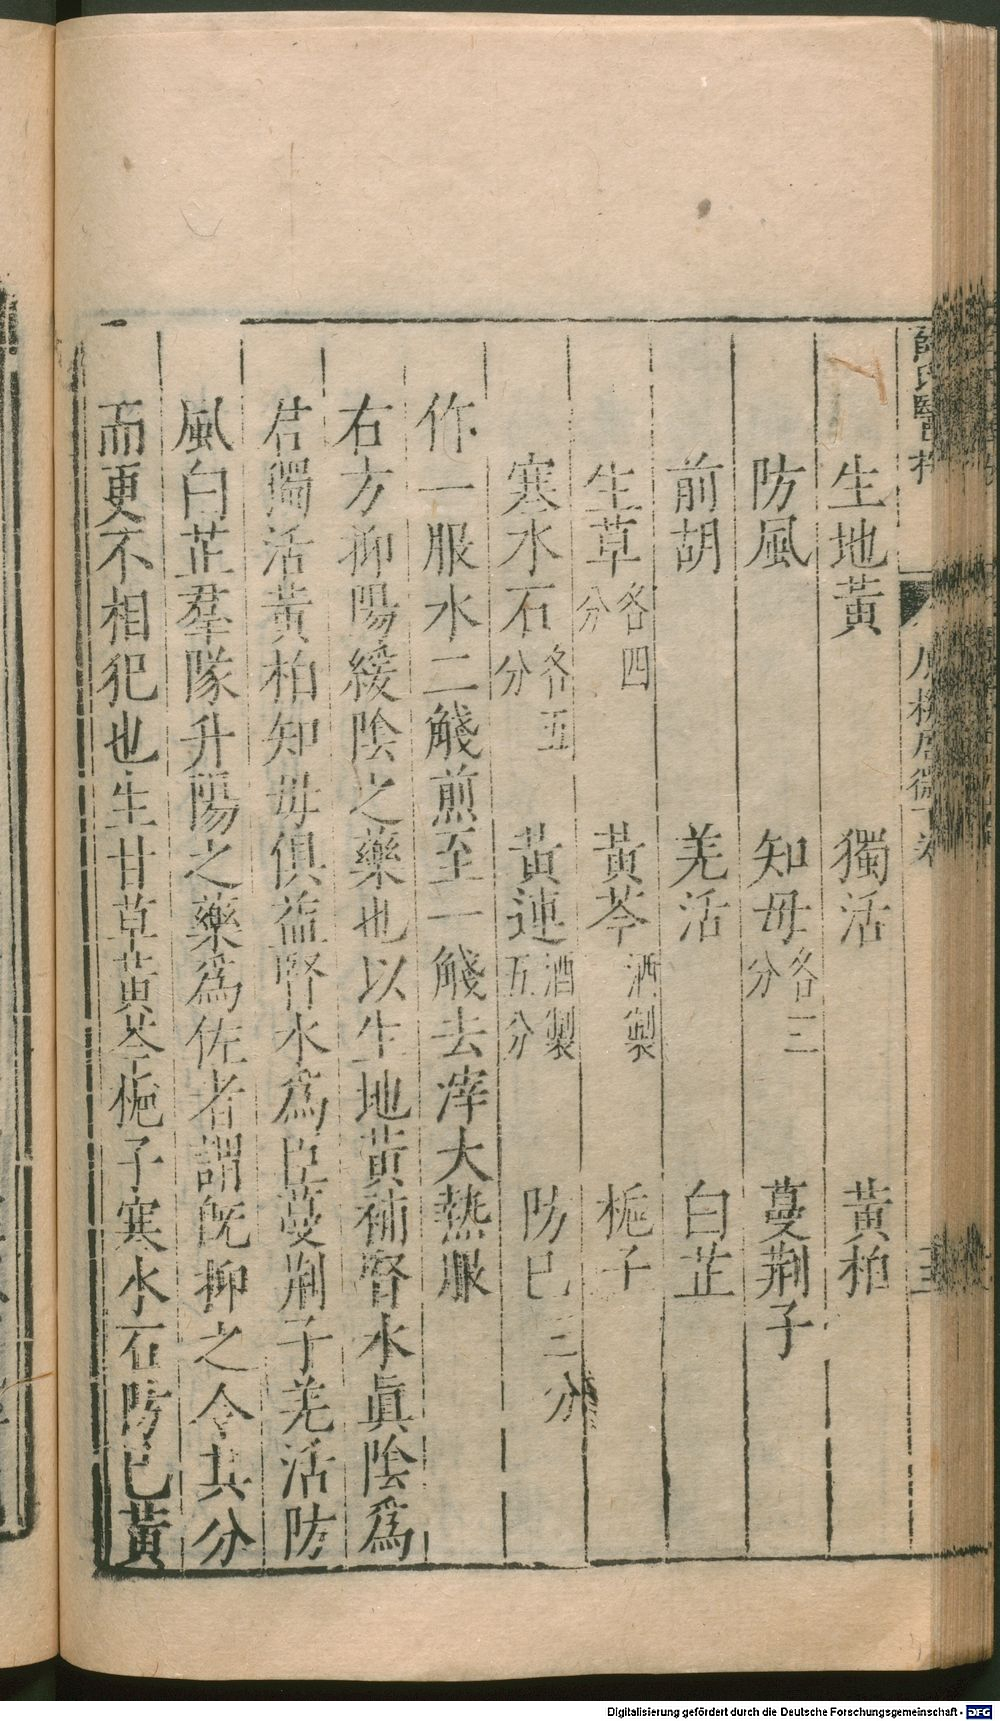 生地黃　獨活　黃柏
防風　知母各三分　蔓荆子
前胡　羌活　白芷
生草各四分　黃芩酒製　梔子
寒水石各五分　黃連酒製五分　防已三分
作一服水二觥煎至一觥去滓大熱服
右方抑陽緩陰之藥也以生地黃補腎水眞陰爲
君獨活黃柏知母俱益腎水爲臣蔓荆子羌活防
風白芷羣隊升陽之藥爲佐者謂旣抑之令其分
而更不相犯也生甘草黃芩梔子寒水石防已黃
Digitalisierung gefördert durch die Deutsche Forschungsgemeinschaft - DFG